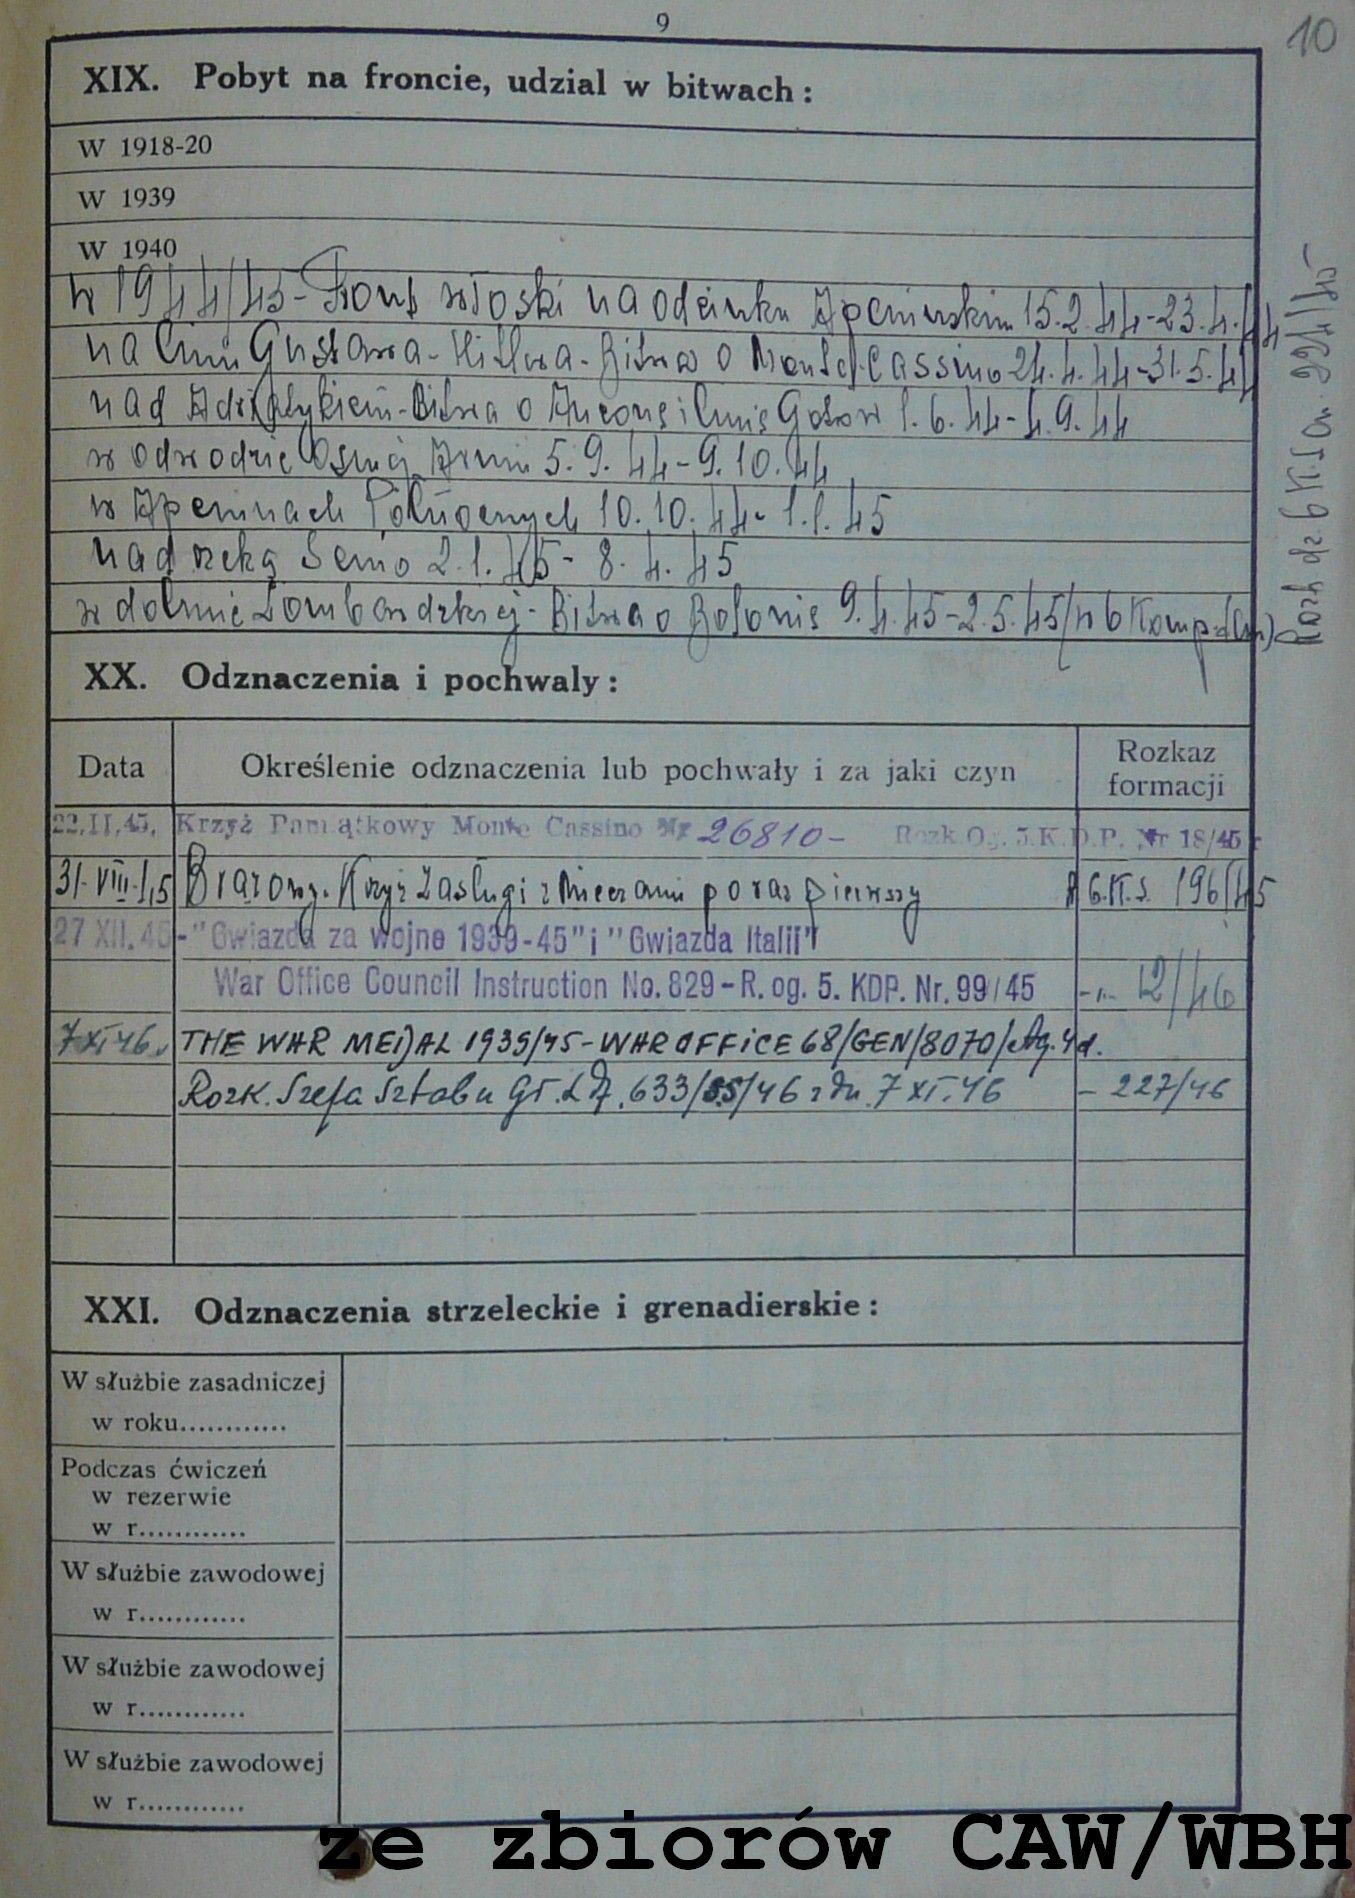 9
10
XIX. Pobyt na froncie, udzial w bitwach :
W 1918-20
W 1939
W 1940
w 1944/45 - Front włoski na odcinku Apenińskim 15.2.44-23.4.44
na linii Gustawa-Hitlera-Bitwa o Monte Cassino 24.4.44-31.5.44
nad Adriatykiem-Bitwa o Anconę i linię Gotów 1.6.44-4.9.44
w odwodzie Osmej Armii 5.9.44-9.10.44
w Apeninach Północnych 10.10.44-1.1.45
nad rzeką Senio 2.1.45-8.4.45
w dolinie Lombardzkiej-Bitwa o Bolonię 9.4.45-2.5.45/w 6 Komp.
Rozk dz. 6 221/45
XX. Odznaczenia i pochwaly :
Data Określenie odznaczenia lub pochwały i za jaki czyn Rozkaz formacji
22.II.45. Krzyż Pamiątkowy Monte Cassino Nr 26810- Rozk.Og. 5.K.D.P. Nr 18/45 r
31.VIII.45 Brązowy Krzyż Zasługi z Mieczami po raz pierwszy 196/45
27 XII. 45 -"Gwiazda za wojnę 1939-45" i "Gwiazda Italii"
War Office Council Instruction No. 829-R. og. 5. KDP. Nr. 99/45 -"- 12/46
7 XI 46. THE WAR MEDAL 1939/45-WAR OFFICE 68/GEN/8070/Ag. 4d.
Rozk. Szefa Sztabu Gł. L.Dz. 633/55/46 z dn. 7 XI.46 - 227/46
XXI. Odznaczenia strzeleckie i grenadierskie :
W służbie zasadniczej
w roku............
Podczas ćwiczeń
w rezerwie
w r............
W służbie zawodowej
w r............
W służbie zawodowej
w r............
W służbie zawodowej
w r............
ze zbiorów CAW/WBH